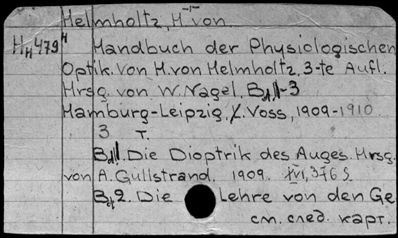 Helmholtz, H. von.
HH479H Handbuch der Physiologischen
Optik. Von H. von Helmholtz. 3-te Aufl.
Hrsg. von W. Nagel. Bd 1-3
Hamburg-Leipzig. L. Voss, 1909-1910.
3 T.
Bd 1. Die Dioptrik des Auges. Hrsg.
von A. Gullstrand. 1909. XVI, 376 S.
Bd 2. Die Lehre von den Ge
см. след. карт.